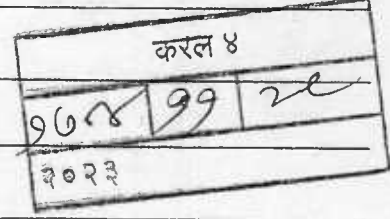 करल ४
१७४ ११ २८
२०२३